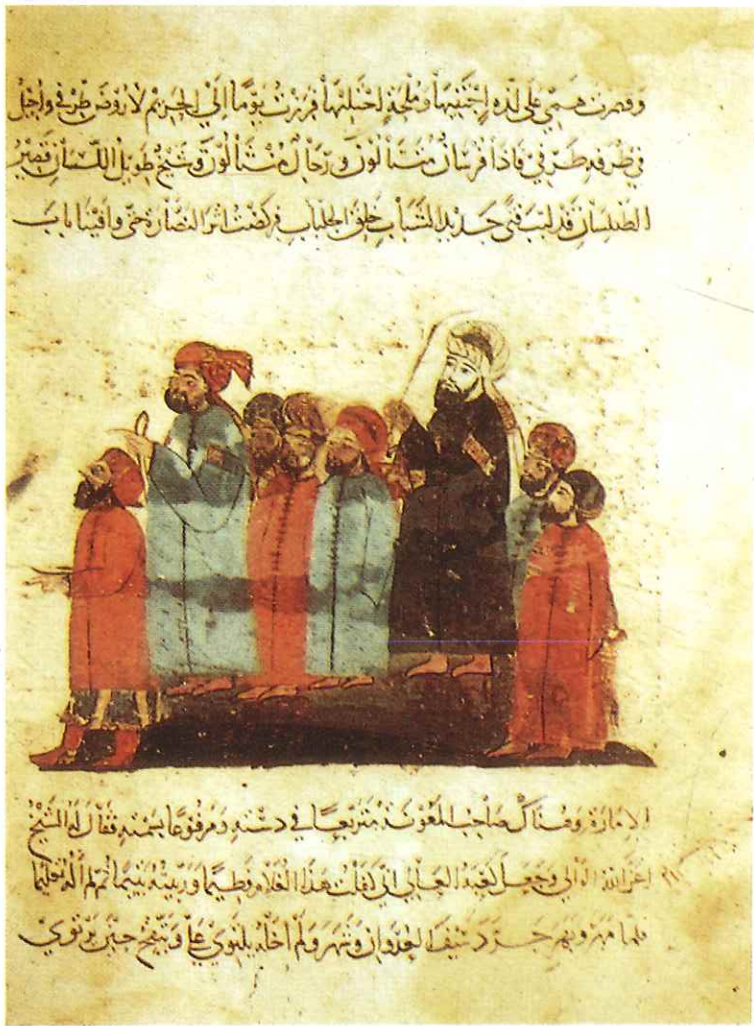 وقصرت همي على لذه اجتنيها وملحة اجتليها فبرزت يوما الى الحريم لاروض طرفي واجيل
في طرقه طرفي فاذا فرسان متتالون ورجال منثالون وشيخ طويل اللسان قصير
الطيلسان قد لبب فتى جديد الشباب خلق الجلباب فركضت اثر النظارة حتى وافينا باب
الامارة وهناك صاحب المعونة متربعا في دسته ومروعا بسمته فقال له الشيخ
اعز الله الوالي وجعل كعبه العالي اني كفلت هذا الغلام فطيما وربيته يتيما ثم لم اله تعليما
فلما مهر وبهر جرد سيف العدوان وشهر ولم اخله يلتوي علي ويتقح حين يرتوي